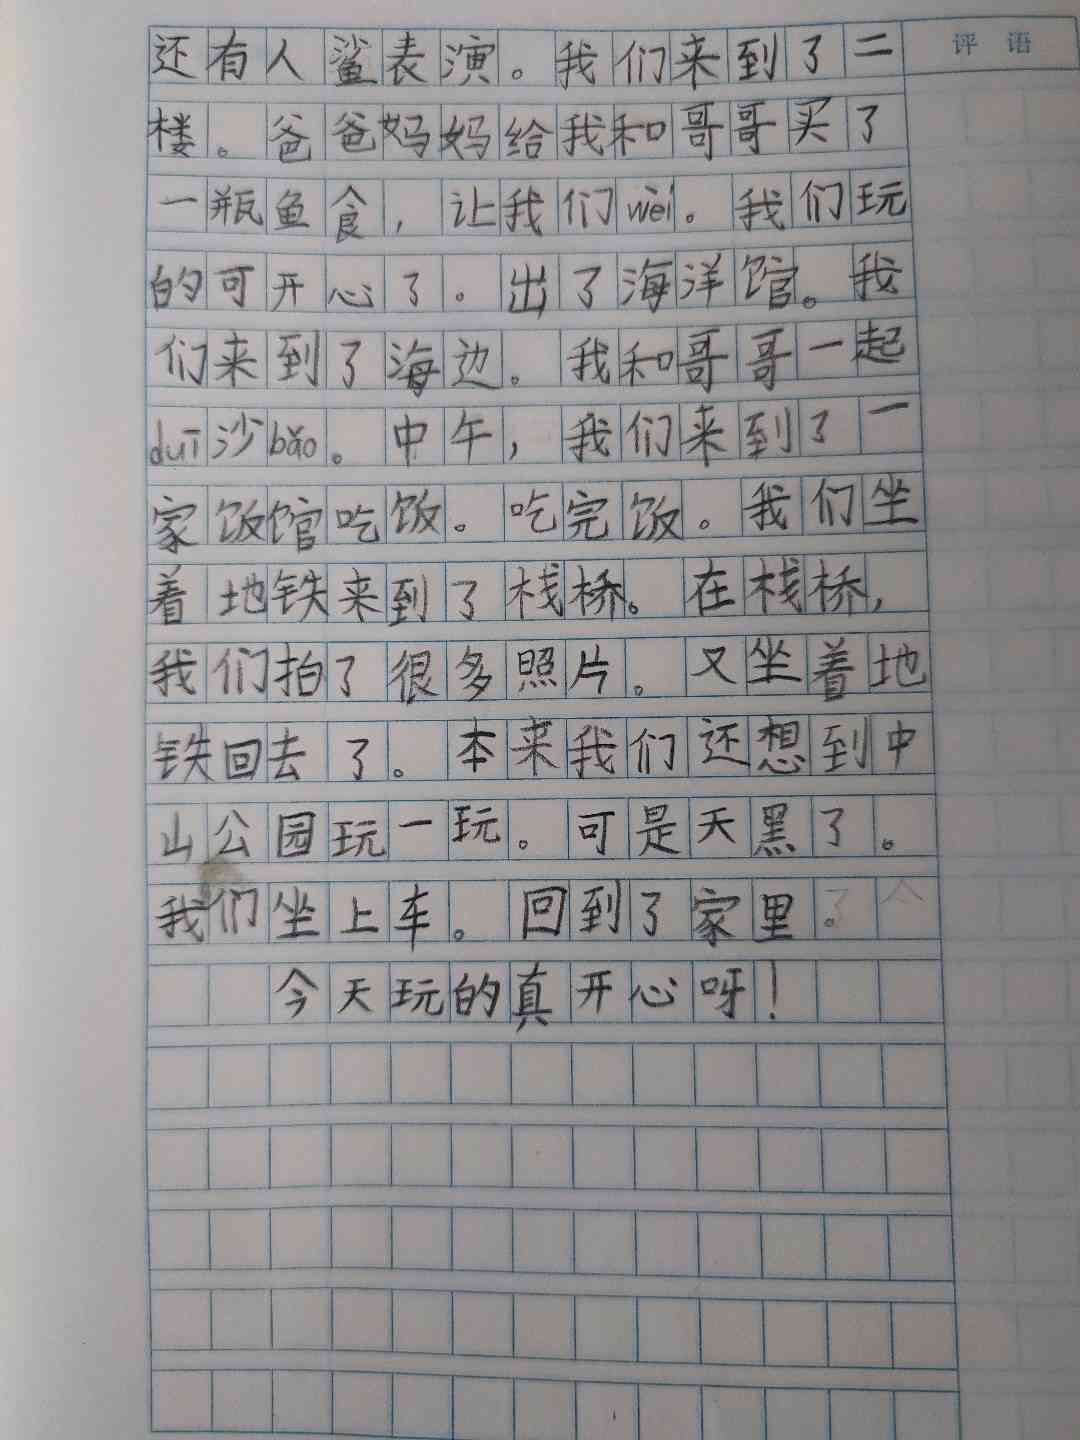 评语
还有人鲨表演。我们来到了二
楼。爸爸妈妈给我和哥哥买了
一瓶鱼食，让我们wèi。我们玩
的可开心了。出了海洋馆。我
们来到了海边。我和哥哥一起
duī沙bǎo。中午，我们来到了一
家饭馆吃饭。吃完饭。我们坐
着地铁来到了栈桥。在栈桥，
我们拍了很多照片。又坐着地
铁回去了。本来我们还想到中
山公园玩一玩。可是天黑了。
我们坐上车。回到了家里。
今天玩的真开心呀！